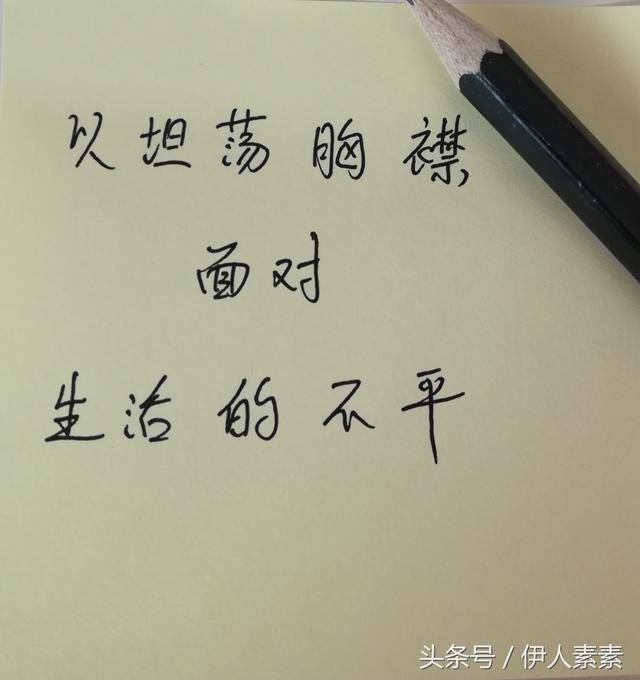 以坦荡胸襟,
面对
生活的不平
头条号/伊人素素